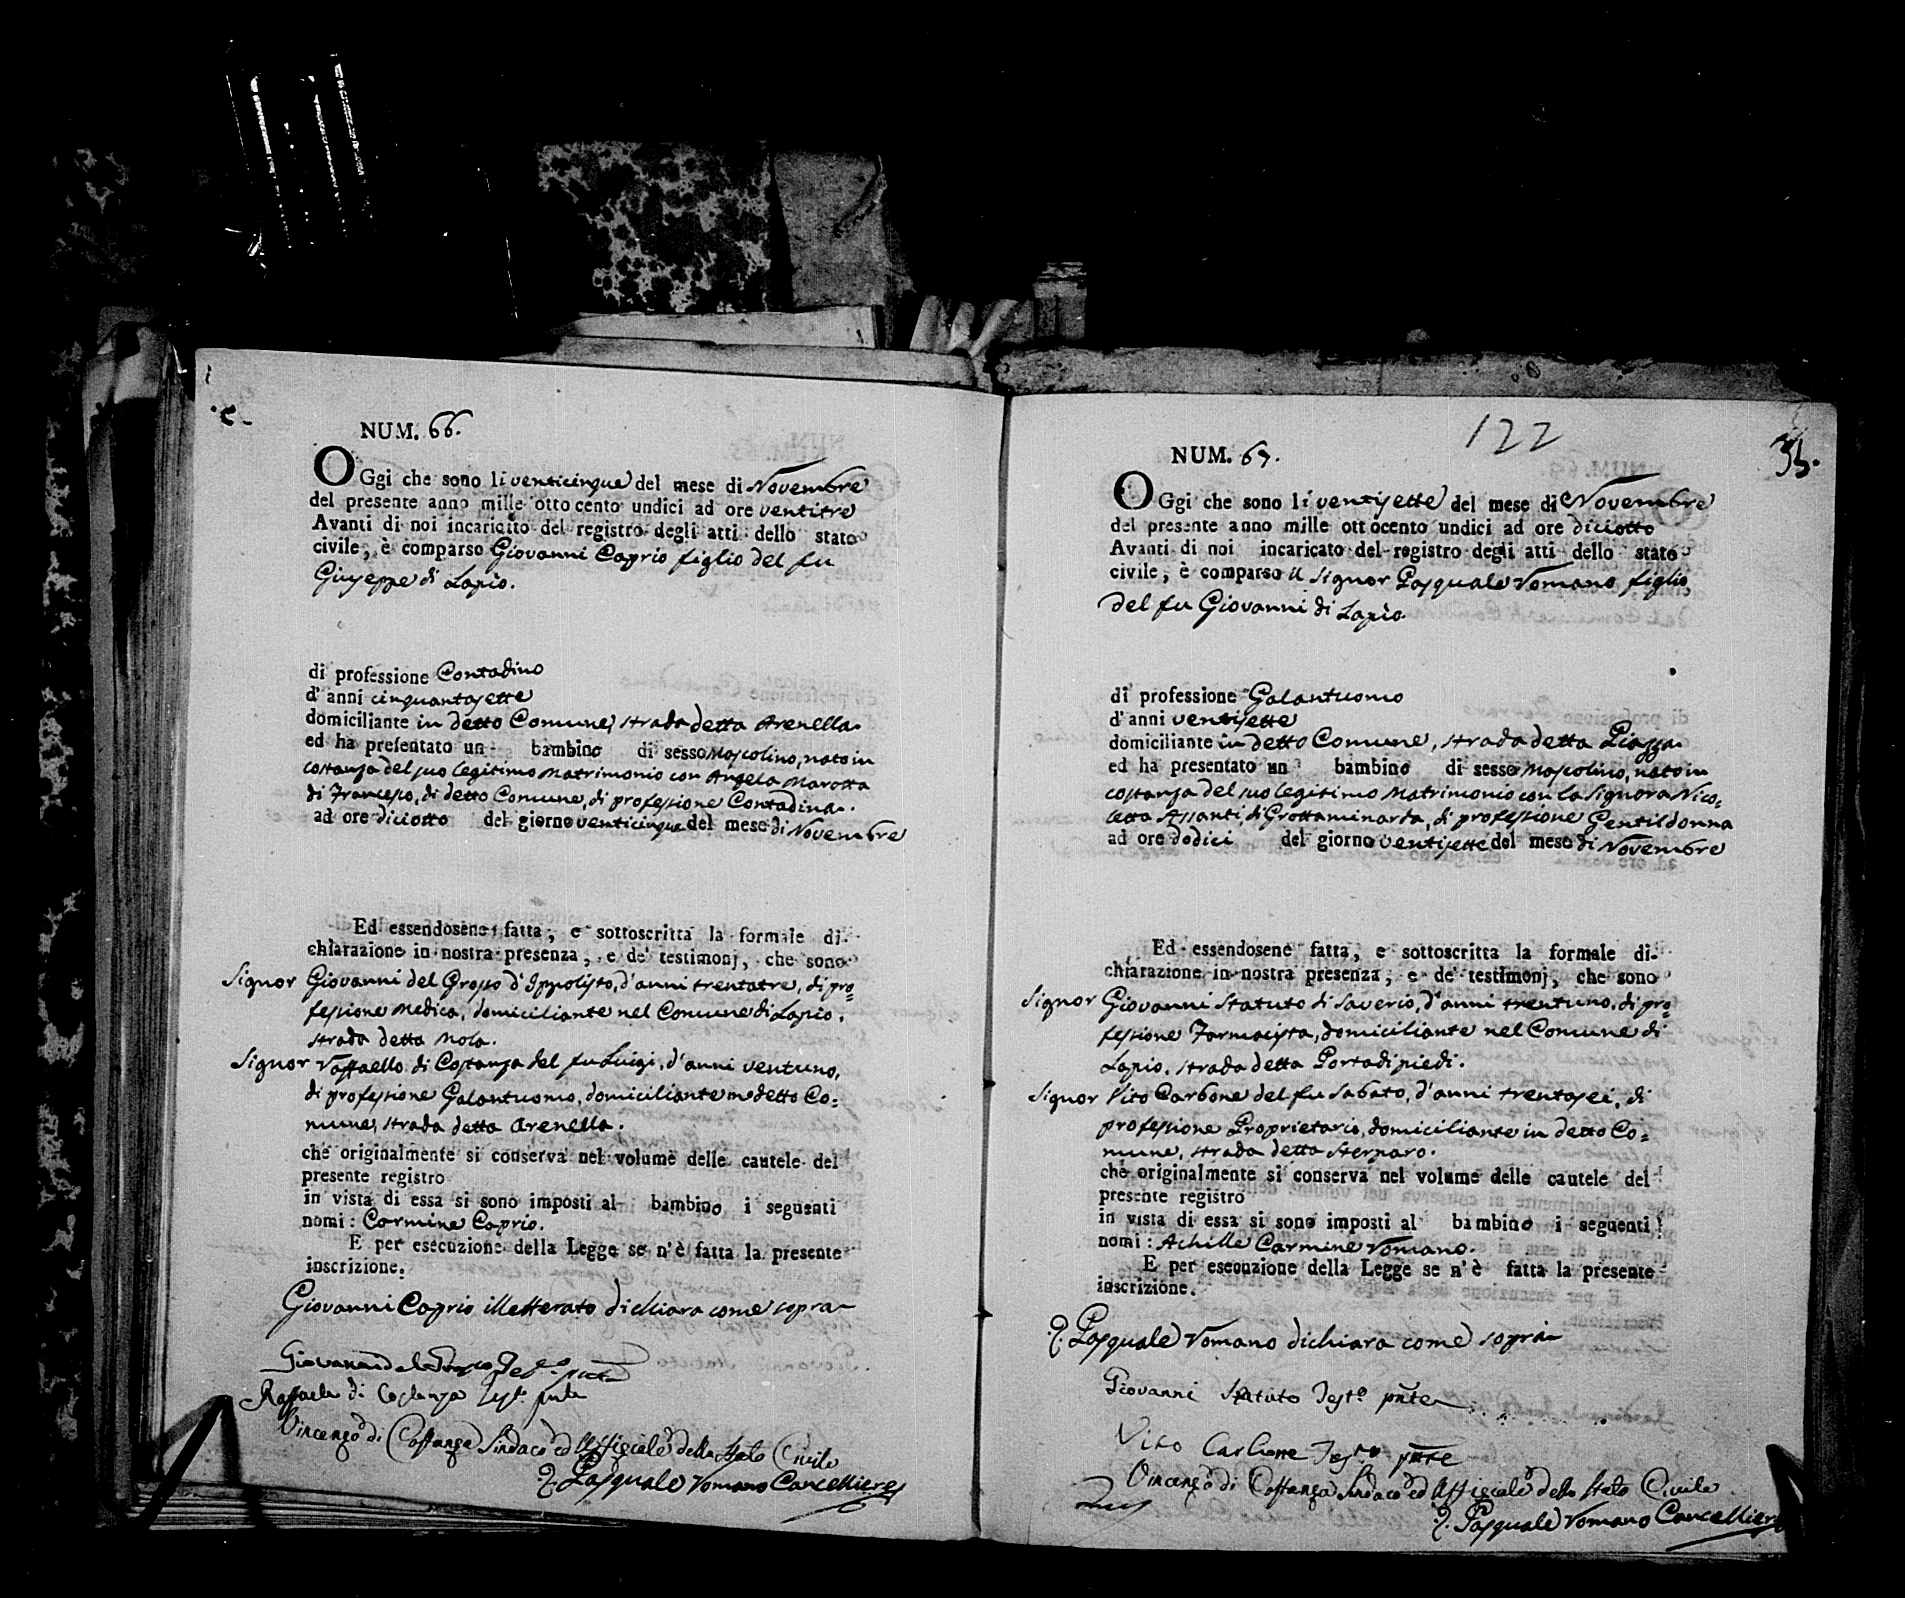 NUM. 66.
OGgi che sono li venticinque del mese di Novembre
del presente anno mille ottocento undici ad ore ventitre
Avanti di noi incaricato del registro degli atti dello stato
civile, è comparso Giovanni Caprio figlio del fu
Giuseppe di Lapio.
di professione Contadino
d'anni cinquantasette
domiciliante in detto Comune, strada detta Arenella.
ed ha presentato un bambino di sesso Mascolino, nato in
costanza del suo legitimo Matrimonio con Angela Marotta
di Francesco, di detto Comune, di professione Contadina.
ad ore diciotto del giorno venticinque del mese di Novembre
Ed essendosene fatta, e sottoscritta la formale di-
chiarazione in nostra presenza, e de' testimonj, che sono
Signor Giovanni del Grosso d'Ippolisto, d'anni trentatre, di pro=
fessione Medico, domiciliante nel Comune di Lapio,
strada detta Mola.
Signor Raffaello di Costanza del fu Luigi, d'anni ventuno,
di professione Galantuomo, domiciliante in detto Co=
mune, strada detta Arenella.
che originalmente si conserva nel volume delle cautele del
presente registro
in vista di essa si sono imposti al bambino i seguenti
nomi: Carmine Caprio.
E per esecuzione della Legge se n'è fatta la presente
inscrizione.
Giovanni Caprio illetterato dichiara come sopra
Giovanni del Grosso Tes.o pnte
Raffaele di Costanza Test. pnte
Vincenzo di Costanza Sindaco ed Uffiziale dello Stato Civile
Pasquale Romano Cancelliere
122
35.
NUM. 67.
OGgi che sono li ventisette del mese di Novembre
del presente anno mille ottocento undici ad ore diciotto
Avanti di noi incaricato del registro degli atti dello stato
civile, è comparso il Signor Pasquale Romano figlio
del fu Giovanni di Lapio.
di professione Galantuomo
d'anni ventisette
domiciliante in detto Comune, strada detta Piazza.
ed ha presentato un bambino di sesso Mascolino, nato in
costanza del suo legitimo Matrimonio con la Signora Nico=
letta Assanti, di Grottaminarda, di professione Gentildonna
ad ore dodici del giorno ventisette del mese di Novembre
Ed essendosene fatta, e sottoscritta la formale di-
chiarazione in nostra presenza, e de' testimonj, che sono
Signor Giovanni Statuto di Saverio, d'anni trentuno, di pro=
fessione Farmacista, domiciliante nel Comune di
Lapio, strada detta Portadipiedi.
Signor Vito Carbone del fu Sabato, d'anni trentasei, di
professione Proprietario, domiciliante in detto Co=
mune, strada detta Sterparo.
che originalmente si conserva nel volume delle cautele del
presente registro
in vista di essa si sono imposti al bambino i seguenti
nomi: Achille Carmine Romano.
E per esecuzione della Legge se n'è fatta la presente
inscrizione.
Pasquale Romano dichiara come sopra
Giovanni Statuto Test.o pnte
Vito Carbone Test.o pnte
Vincenzo di Costanza Sindaco ed Uffiziale dello Stato Civile
Pasquale Romano Cancelliere